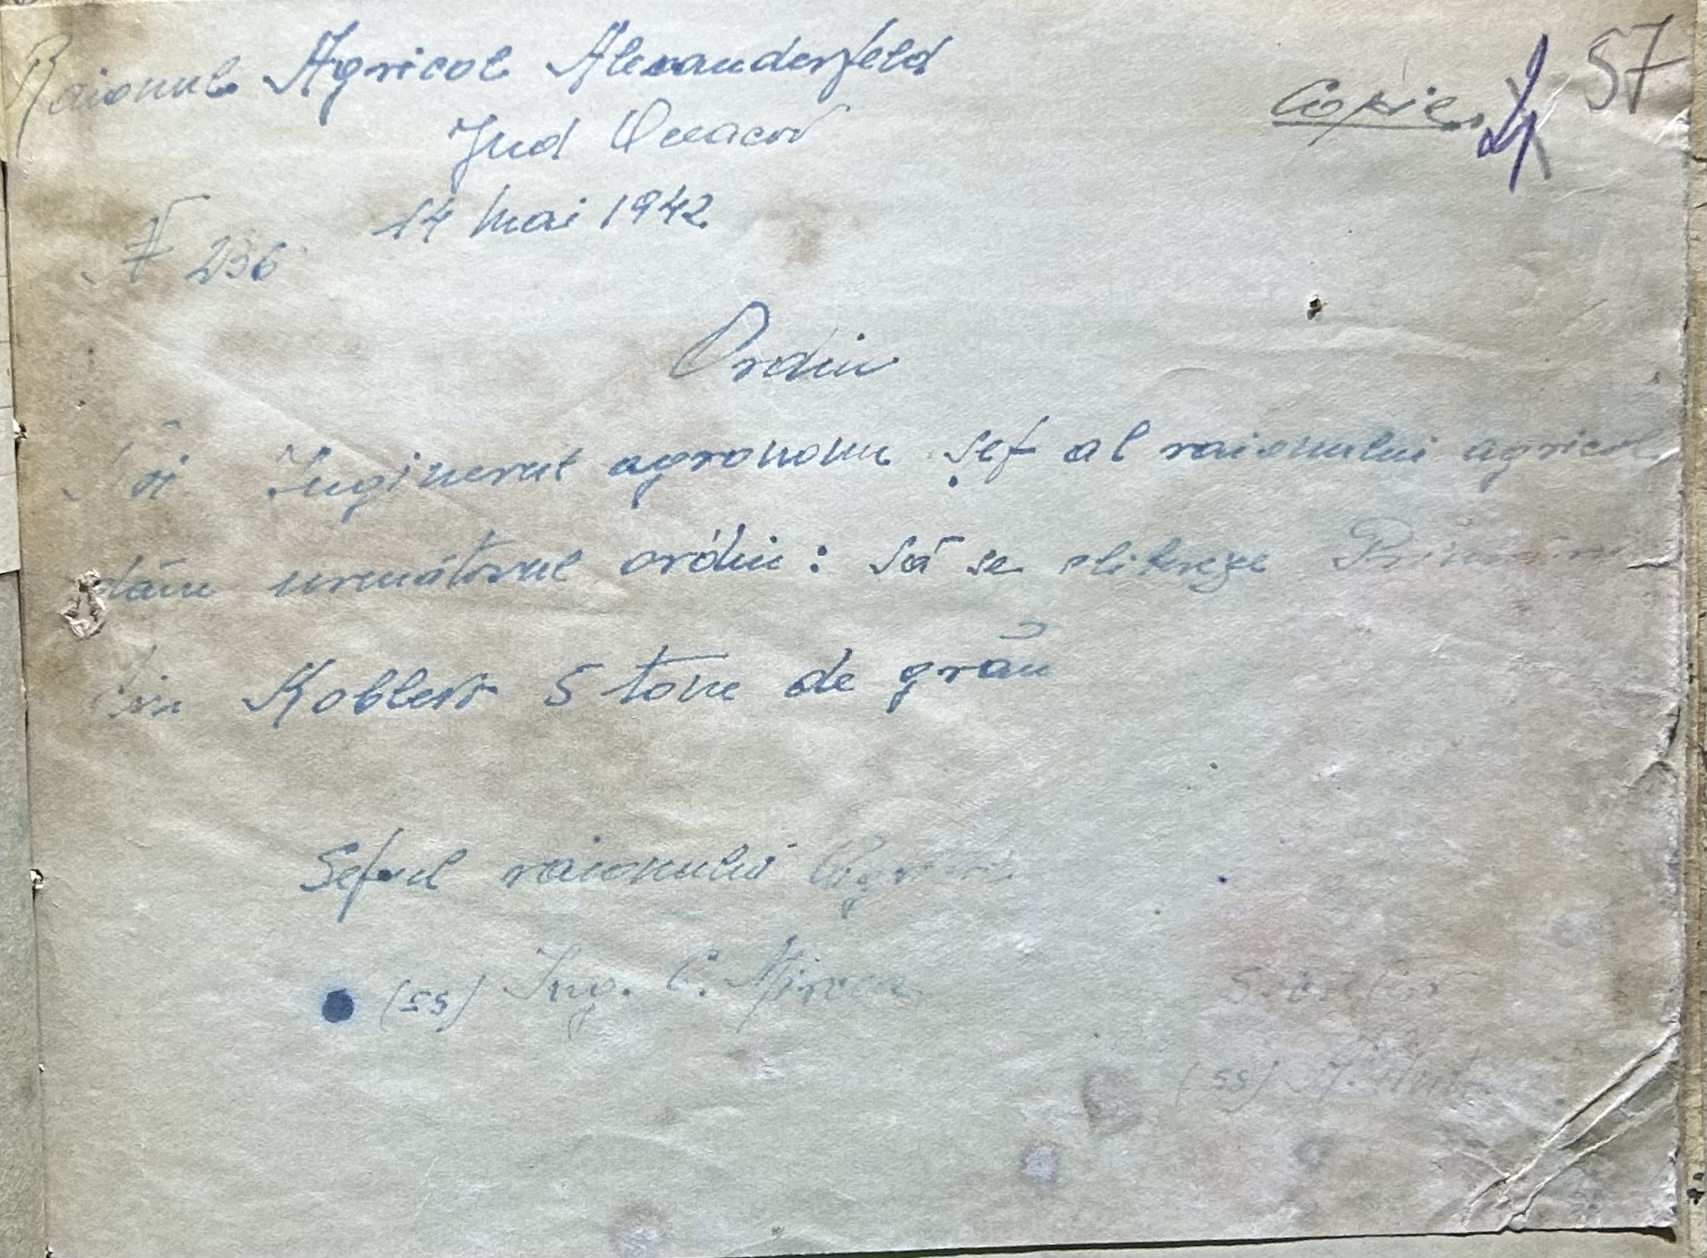 Raionul Agricol Alexanderfeld
Copie 57
Jud Oceacov
14 Mai 1942
N 236
Ordin
Noi Inginerul agronom șef al raionului agricol
dăm următorul ordin: să se elibereze
din Koblevo 5 tone de grâu
Seful raionului Agricol
(ss) Ing. C. Mircea
Secretar
(ss)